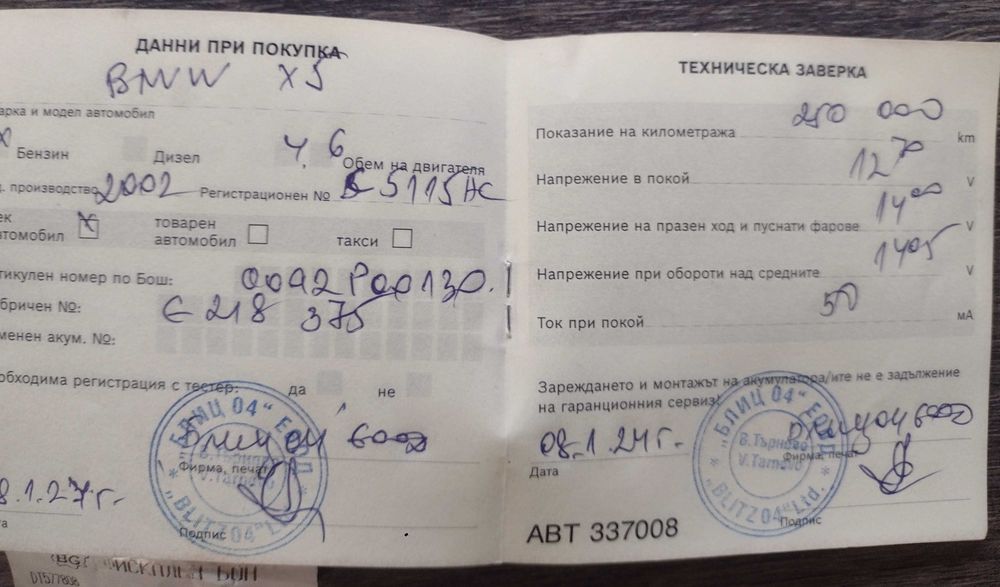 ДАННИ ПРИ ПОКУПКА
BMW X5
арка и модел автомобил
Бензин Дизел 4,6 Обем на двигателя
производство 2002 Регистрационен № 5115
ек
товарен
втомобил X автомобил такси
тикулен номер по Бош: 0092P00130.
бричен №: G 218 375
менен акум. №:
обходима регистрация с тестер: да не
"БЛИЦ 04" ЕООД
В.Търново
V.Tarnovo
"BLITZ 04" Ltd.
Фирма, печат
8.1.24г.
Подпис
ТЕХНИЧЕСКА ЗАВЕРКА
Показание на километража 250 000 km
Напрежение в покой 12 70 V
Напрежение на празен ход и пуснати фарове 14 00 V
Напрежение при обороти над средните 14 05 V
Ток при покой 50 мА
Зареждането и монтажът на акумулатора/ите не е задължение
на гаранционния сервиз!
08.1.24г.
Дата
"БЛИЦ 04" ЕООД
В.Търново
V.Tarnovo
"BLITZ 04" Ltd.
Фирма, печат
Подпис
АВТ 337008
(BG) ФИСКАЛЕН БОН
DT577808